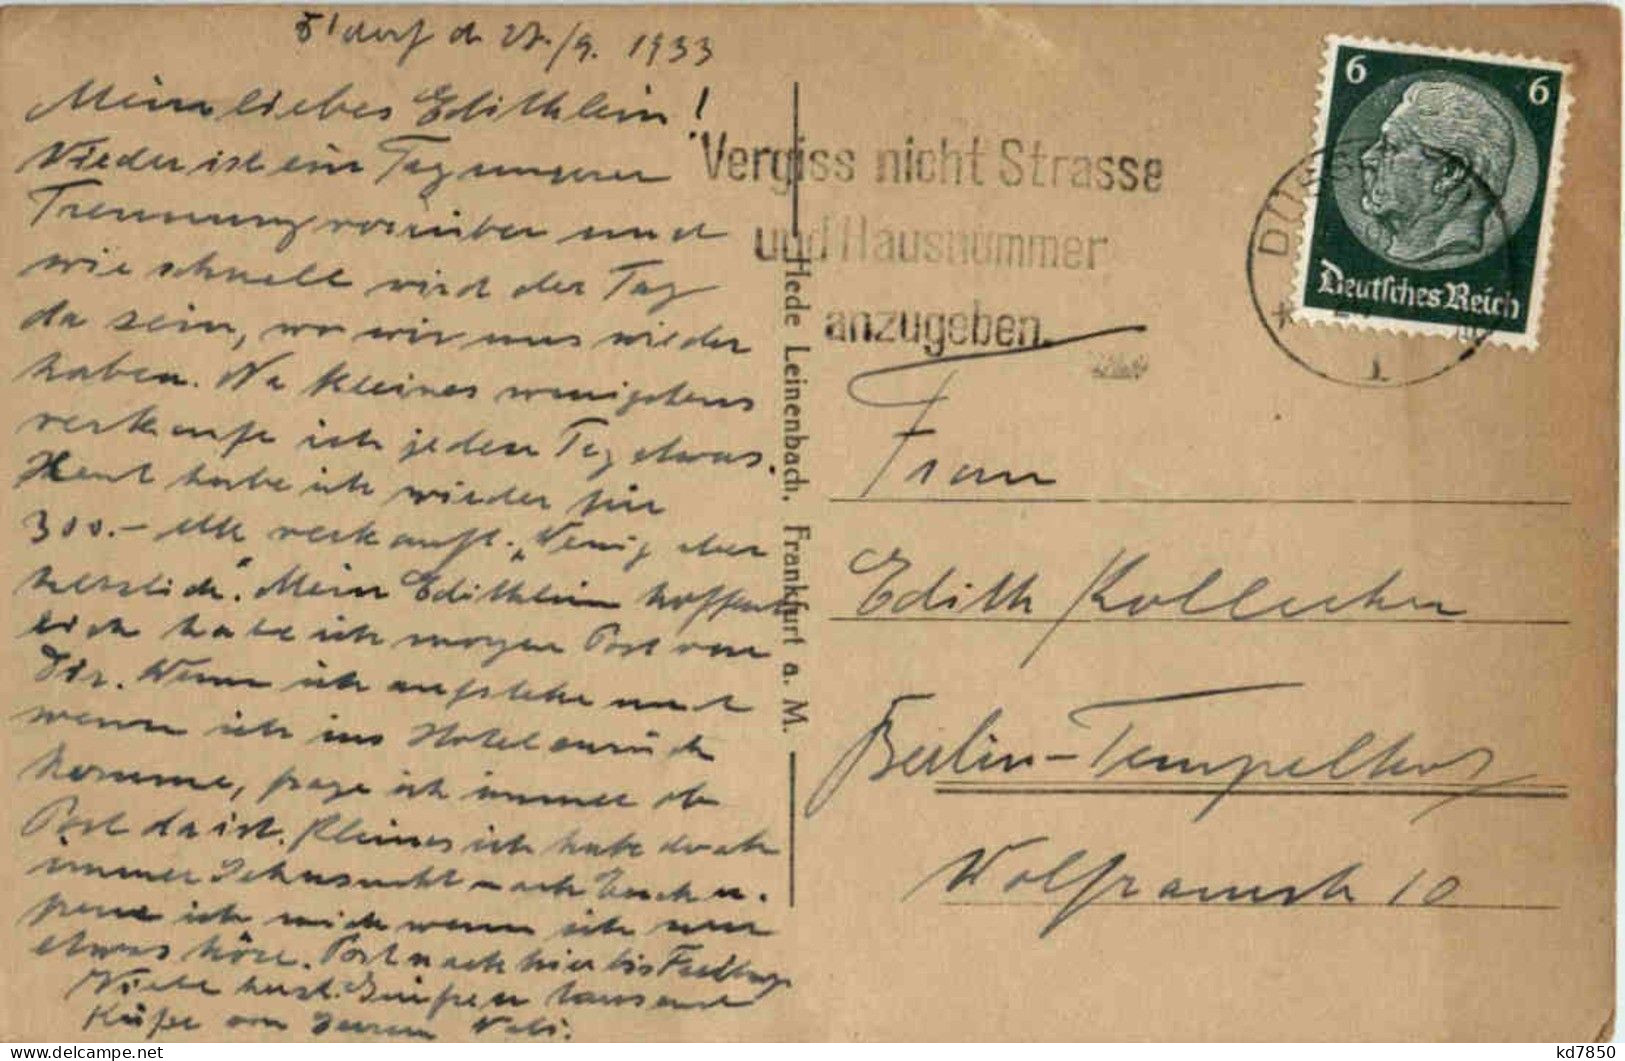 D'dorf d. 27./9. 1933
Mein liebes Edithlein!
Wieder ist ein Tag unserer
Trennung vorüber und
wie schnell wird der Tag
da sein, wo wir uns wieder
haben. Na kleines wenigstens
verkaufe ich jeden Tag etwas.
Heut habe ich wieder für
300.- Mk verkauft. „Wenig aber
herzlich". Mein Edithlein hoffent
lich habe ich morgen Post von
Dir. Wenn ich aufstehe und
wenn ich ins Hotel zurück
komme, frage ich immer ob
Post da ist. Kleines ich habe doch
immer Sehnsucht nach Euch u.
freue ich mich wenn ich nur
etwas höre. Post nach hier bis Freitag
Viele herzl. Grüße u tausend
Küße von Deinem
Hede Leinenbach, Frankfurt a. M.
Vergiss nicht Strasse
und Hausnummer
anzugeben.
6 6
Deutsches Reich
DÜSS
Frau
Edith
Berlin-Tempelhof
Wolframstr 10
kd7850